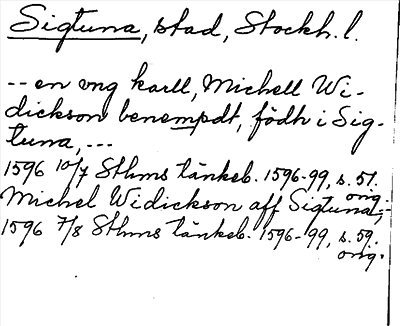 Sigtuna, stad, Stockh. l.
-- en vng karll, Michell Wi-
dickson benempdt, födh i Sig-
tuna, ---
1596 10/7 Sthms tänkeb. 1596-99, s. 51.
orig.
Michel Widickson aff Sigtuna,-
1596 7/8 Sthms tänkeb. 1596-99, s. 59.
orig.